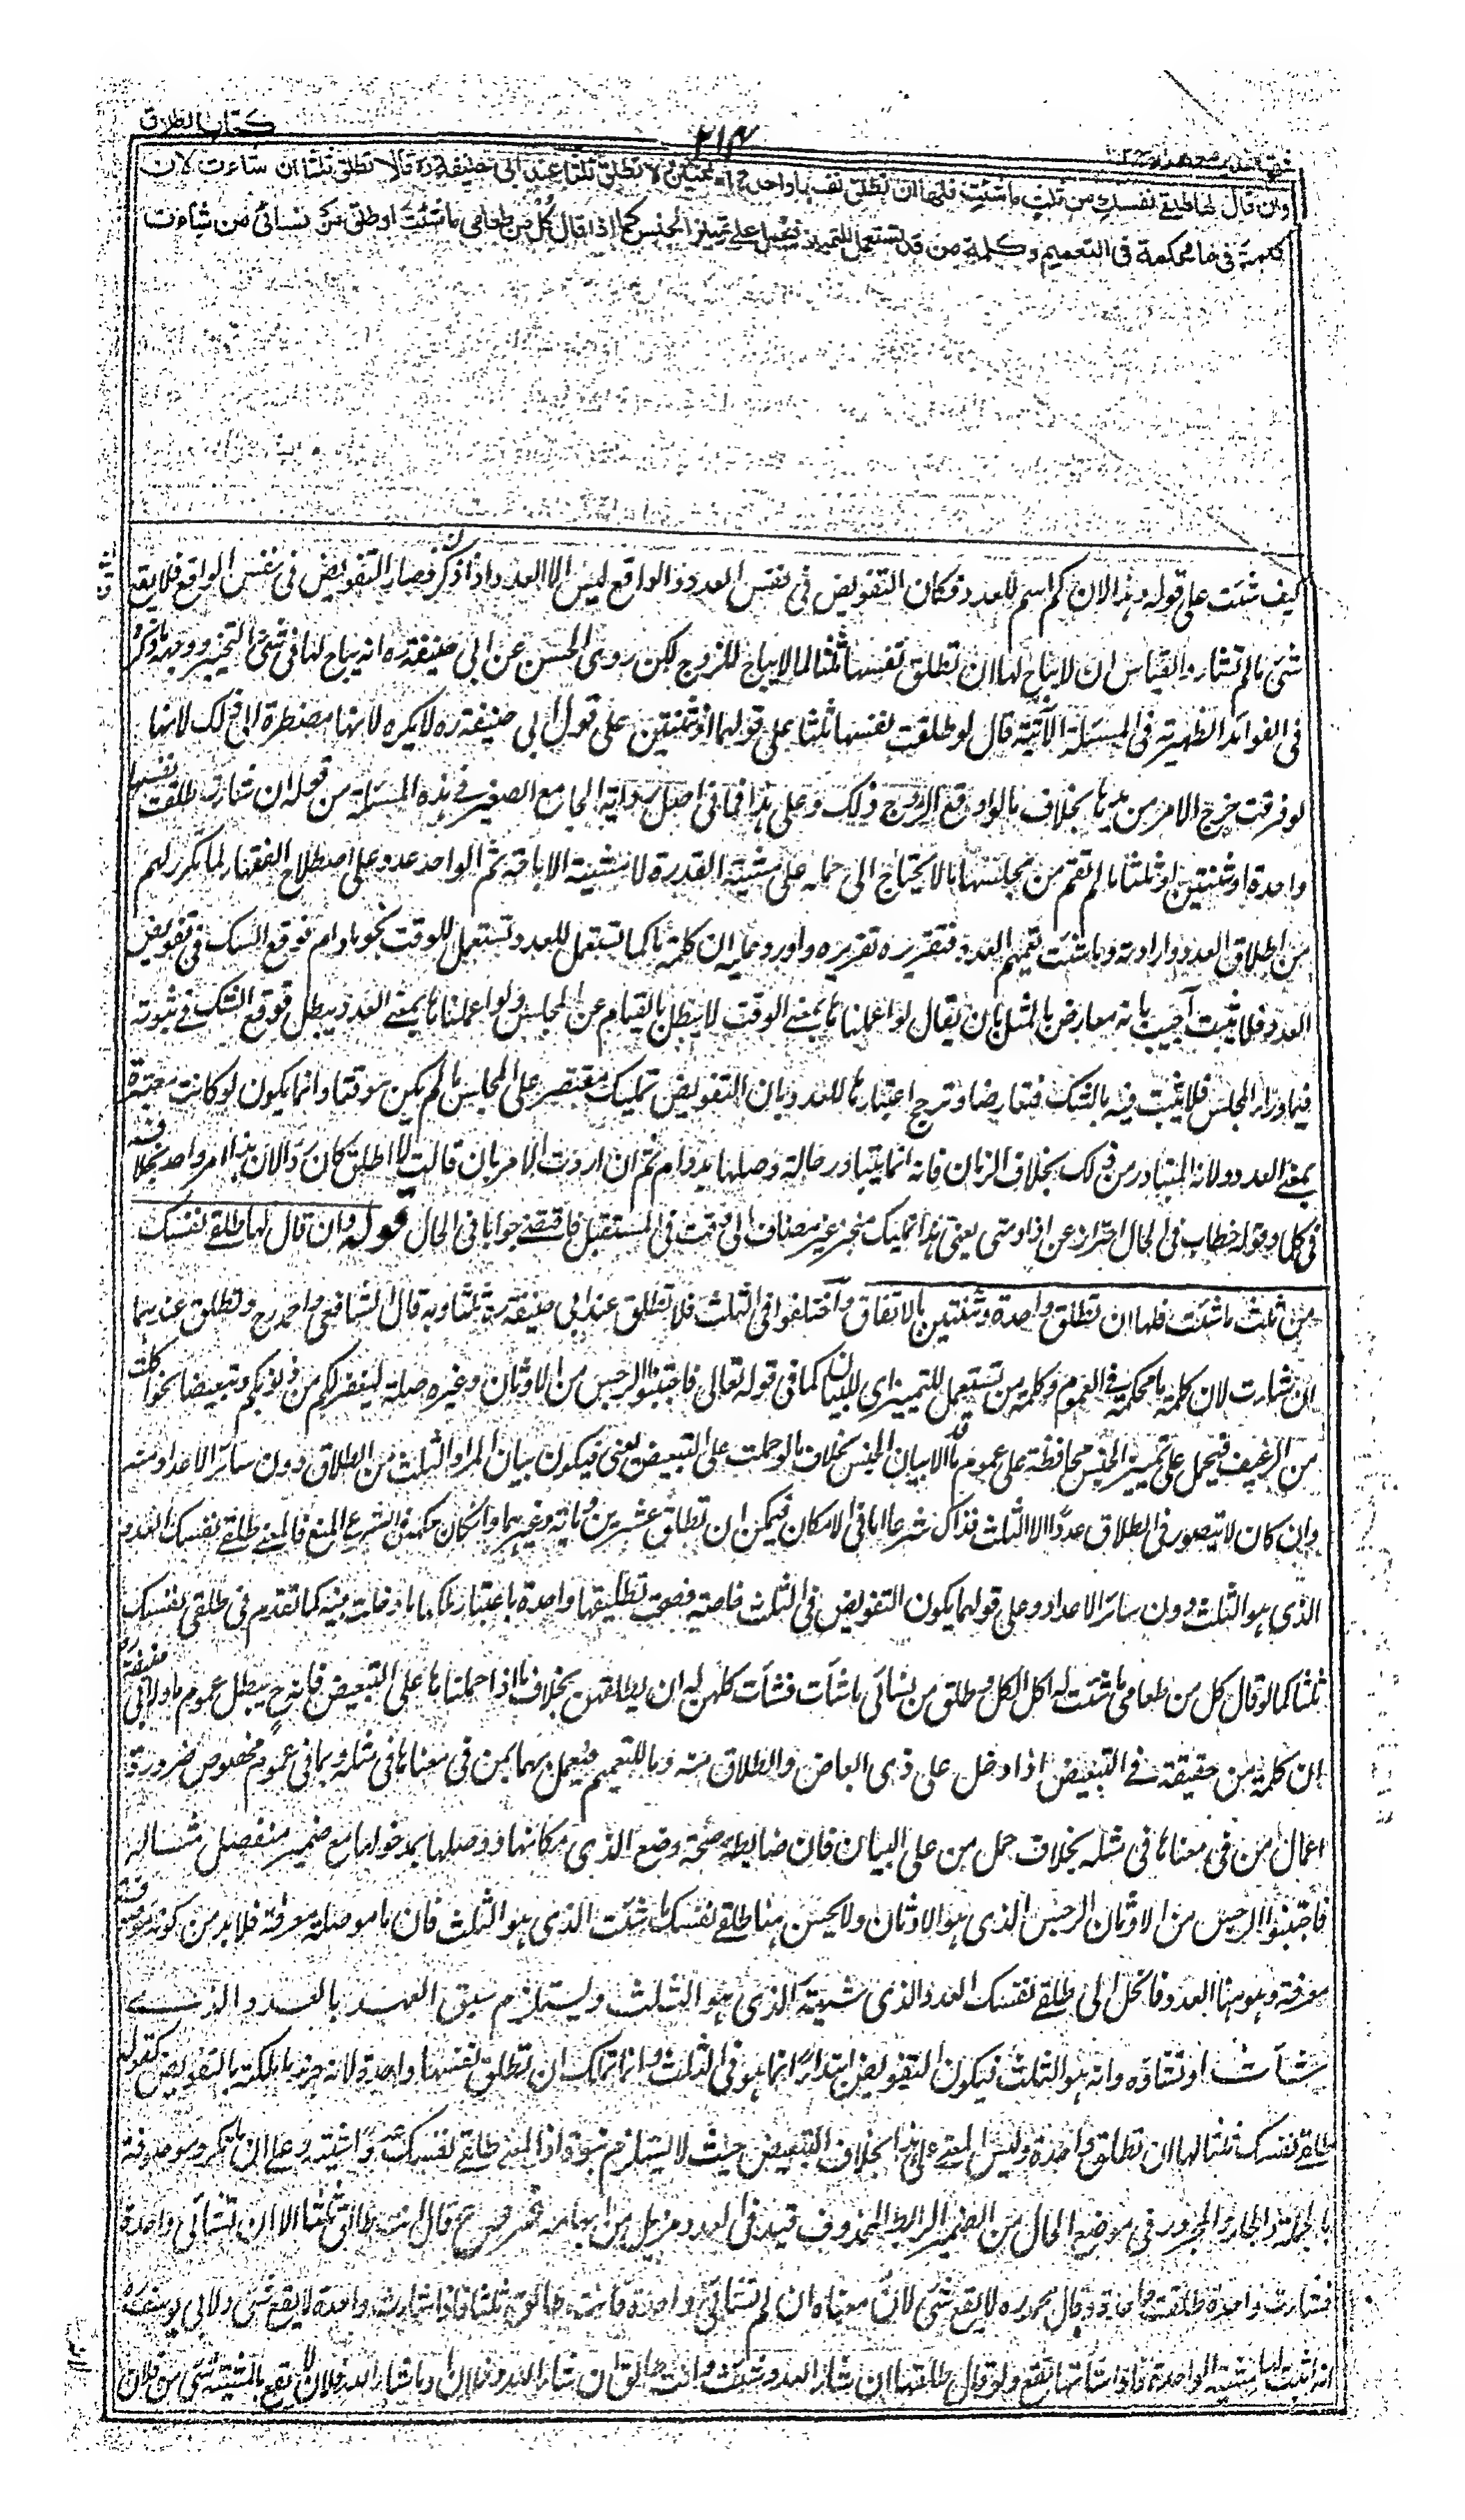 كتاب الطلاق
٢١٤
وان قال لها طلقي نفسك من ثلث ما شئت فلها ان تطلق نفسها واحدة او ثنتين ولا تطلق ثلثا عند ابي حنيفة ره وقالا تطلق ثلثا ان شاءت لان
كلمة ما محكمة في التعميم وكلمة من قد تستعمل للتمييز فيحمل على تمييز الجنس كما اذا قال كل من طعامي ما شئت او طلق من نسائي من شاءت
كيف شئت على قوله وهذا لان كم اسم للعدد فكان التفويض في نفس العدد والواقع ليس الا العدد واذا ذكر فصار التفويض في نفس الواقع فلا يقع
شئ ما لم تشاء والقياس ان لا يباح لها ان تطلق نفسها ثلثا لما لا يباح للزوج لكن روى الحسن عن ابي حنيفة ره انه يباح لها في شئ التخيير ووجهه ما ذكر
في الفوائد الظهيرية في المسئلة الآتية قال لو طلقت نفسها ثلثا على قولهما او ثنتين على قول ابي حنيفة ره لا يكره لانها مضطرة الى ذلك لانها
لو فرقت خرج الامر من يدها بخلاف ما لو اوقع الزوج ذلك وعلى هذا فما في اصل رواية الجامع الصغير في هذه المسئلة من قوله ان شاءت طلقت نفسها
واحدة او ثنتين او ثلثا ما لم تقم من مجلسها لا يحتاج الى حمله على مشيئة القدرة لا مشيئة الاباحة ثم الواحد عدد على اصطلاح الفقهاء لما تكرر لهم
من اطلاق العدد وارادته وما شئت تعميم العدد فتقريره تقريره واورد عليه ان كلمة ما كما تستعمل للعدد تستعمل للوقت نحو ما دام فوقع الشك في تفويض
العدد فلا يثبت اجيب بانه معارض بالمثل بان يقال لو اعملناها بمعنى الوقت لا يبطل بالقيام عن المجلس ولو اعملناها بمعنى العدد يبطل فوقع الشك في ثبوته
فيما وراء المجلس فلا يثبت فيه بالشك فتعارضا وترجح اعتبارها للعدد بان التفويض تمليك مقتصر على المجلس ما لم يكن موقتا وانما يكون لو كانت معتبرة
بمعنى العدد ولانه المتبادر من ذلك بخلاف الزمان فانه انما يتبادر حالة وصلها بدوام ثم ان اردت الامر بان قالت لا اطلق كان ردا لان هذا امر واحد بخلاف
في كل وقوله خطاب في الحال احتراز عن اذا ومتى يعني هذا تمليك منجز غير مضاف الى وقت في المستقبل فاقتضى جوابا في الحال قوله وان قال لها طلقي نفسك
من ثلث ما شئت فلها ان تطلق واحدة وثنتين بالاتفاق واختلفوا في الثلث فلا تطلق عند ابي حنيفة ره ثلثا وبه قال الشافعي واحمد رح وتطلق عندهما
ان شاءت لان كلمة ما محكمة في العموم وكلمة من تستعمل للتمييز اي للبيان كما في قوله تعالى فاجتنبوا الرجس من الاوثان وغيره صلة ليغفر لكم من ذنوبكم وتبعيضا نحو اكلت
من الرغيف فيحمل على تمييز الجنس محافظة على عموم ما لا بيان الجنس بخلاف ما لو حملت على التبعيض يعني فيكون بيان المراد الثلث من الطلاق دون سائر الاعداد منه
وان كان لا يتصور في الطلاق عددا الا الثلث فذاك شرعا اما في الامكان فيمكن ان تطلق عشرين ومائة وغيرهما وان كان حكم الشرع المنع فالمعنى طلقي نفسك العدد
الذي هو الثلث دون سائر الاعداد وعلى قولهما يكون التفويض في الثلث خاصة فصحت تطليقها واحدة باعتبار تملكها ما دخلت فيه كما تقدم في طلقي نفسك
ثلثا كما لو قال كل من طعامي ما شئت له اكل الكل وطلق من نسائي ما شاءت فشاءت كلهن له ان يطلقهن بخلاف ما اذا حملناها على التبعيض فانه ح يبطل عموم ما ولابي حنيفة ره
ان كلمة من حقيقة في التبعيض اذا دخل على ذي ابعاض والطلاق منه وما للتعميم فيعمل بهما بمن في معناها في مثله وبما في عموم مخصوص ضرورة
اعمال من في معناها في مثله بخلاف حمل من على البيان فان ضابطه صحة وضع الذي مكانها ووصلها بمدخولها مع ضمير منفصل مثاله
فاجتنبوا الرجس من الاوثان الرجس الذي هو الاوثان ولا يحسن هنا طلقي نفسك ما شئت الذي هو الثلث فان ما موصولة معرفة فلا بد من كونه
معرفة وهو هنا العدد فانحل الى طلقي نفسك العدد الذي شئته الذي هو الثلث ويستلزم سبق العهد بالعدد الذي
شاءت او تشاؤه وانه هو الثلث فيكون التفويض ابتداء انما هو في الثلث وانما تملك ان تطلق نفسها واحدة لانه جزء ما ملكته بالتفويض كقوله
طلقي نفسك ثلثا لها ان تطلق واحدة وليس المعنى على هذا بخلاف التبعيض حيث لا يستلزم
بالجملة والجار والمجرور في موضع الحال من الضمير الرابط المحذوف قيد في العدد قال انت طالق ثلثا الا ان تشائي واحدة
فشاءت واحدة طلقت وقال محمد ره لا يقع شئ لان معناه ان لم تشائي واحدة فانت طالق ثلثا فاذا شاءت واحدة لا يقع شئ ولابي يوسف ره
انه اثبت لها مشيئة الواحدة فاذا شاءتها تقع ولو قال